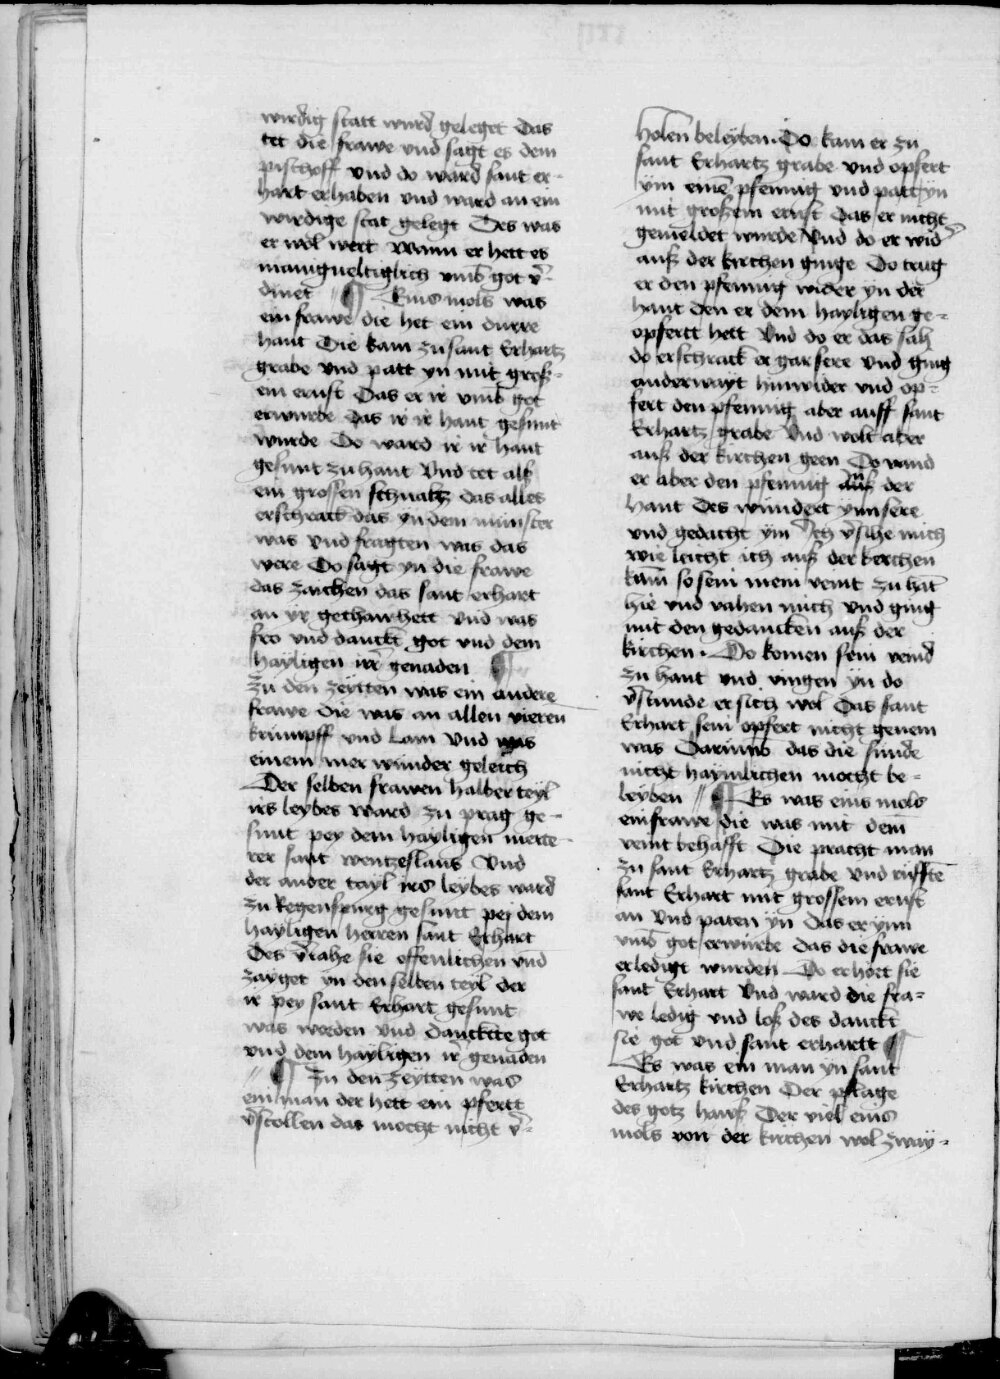 wirdig stat wurd geleget Das
tet die frawe vnd sagt es dem
pischoff vnd do ward sant er-
hart erhaben vnd ward an ein
wirdige stat gelegt Des was
er wol wert Wann er hett es
manigueltiglich vmb got v̄
dinet // ¶ Eins mols was
ein frawe die het ein durre
hant Die kam zu sant Erhartz
grabe vnd patt yn mit groß-
em ernst Das er ir vmb got
erwurbe das ir ir hant gesunt
wurde Do ward ir ir hant
gesunt zu hant Vnd tet als
ein grossen schnaltz das alles
erschrack das yn dem munster
was vnd fragten was das
were Do sagt yn die frawe
das zaichen das sant erhart
an yr gethan hett Vnd was
fro vnd danckt got vnd dem
hayligen irr genaden ¶
Zu den zeytten was ein andere
frawe die was an allen vieren
krumpff vnd lam Vnd was
einem mer wunder geleich
Der selben frawen halber teyl
irs leybes ward zu prag ge-
sunt pey dem hayligen merte-
rer sant wentzeslaus Vnd
der ander tayl irs leybes ward
zu Regenspurg gesunt pey dem
hayligen herren sant Erhart
Des v̄iahe sie offenlichen vnd
zayget yn den selben teyl der
ir pey sant Erhart gesunt
was worden Vnd danckte got
vnd dem hayligen ir genaden
// ¶ Zu den zeytten was
ein man der hett ein pfertt
v̄stollen das mocht nicht v̄-
holen beleyben. Do kam er zu
sant Erhartz grabe vnd opfert
ym einē pfennig vnd patt yn
mit großem ernst das er nicht
gemeldet wurde Vnd do er wid̄
auß der kirchen ginge Do trug
er den pfennig wider yn der
hant den er dem hayligen ge-
opfertt hett Vnd do er das sah
do erschrack er gar sere Vnd ging
anderwayt hinwider vnd op-
fert den pfennig aber auff sant
Erhartz grabe Vnd wolt aber
auß der kirchen geen Do vand
er aber den pfennig yn der
hant Des wundert ym sere
vnd gedacht ym Ich v̄sihe mich
wie leicht ich auß der kerchen
kum so sein mein veint zu hāt
hie vnd vahen mich Vnd ging
mit den gedancken auß der
kirchen. Do komen sein veind
zu hant vnd vingen yn do
v̄stunde er sich wol Das sant
Erhart sein opfert nicht genem
was Darumb das die sunde
nicht haymlichen mocht be-
leyben // ¶ Es was eins mols
ein frawe die was mit dem
veint behafft Die pracht man
zu sant Erhartz grabe Vnd rufftē
sant Erhart mit grossem ernst
an Vnd paten yn das er ym
vmb got erwurbe das die frawe
erledigt wurden Do erhort sie
sant Erhart Vnd ward die fra-
we ledig vnd loß des danckt
sie got vnd sant erhartt ¶
Es was ein man yn sant
Erhartz kirchen Der pflage
des gotz hauß Der viel eins
mols von der kirchen wol zway-